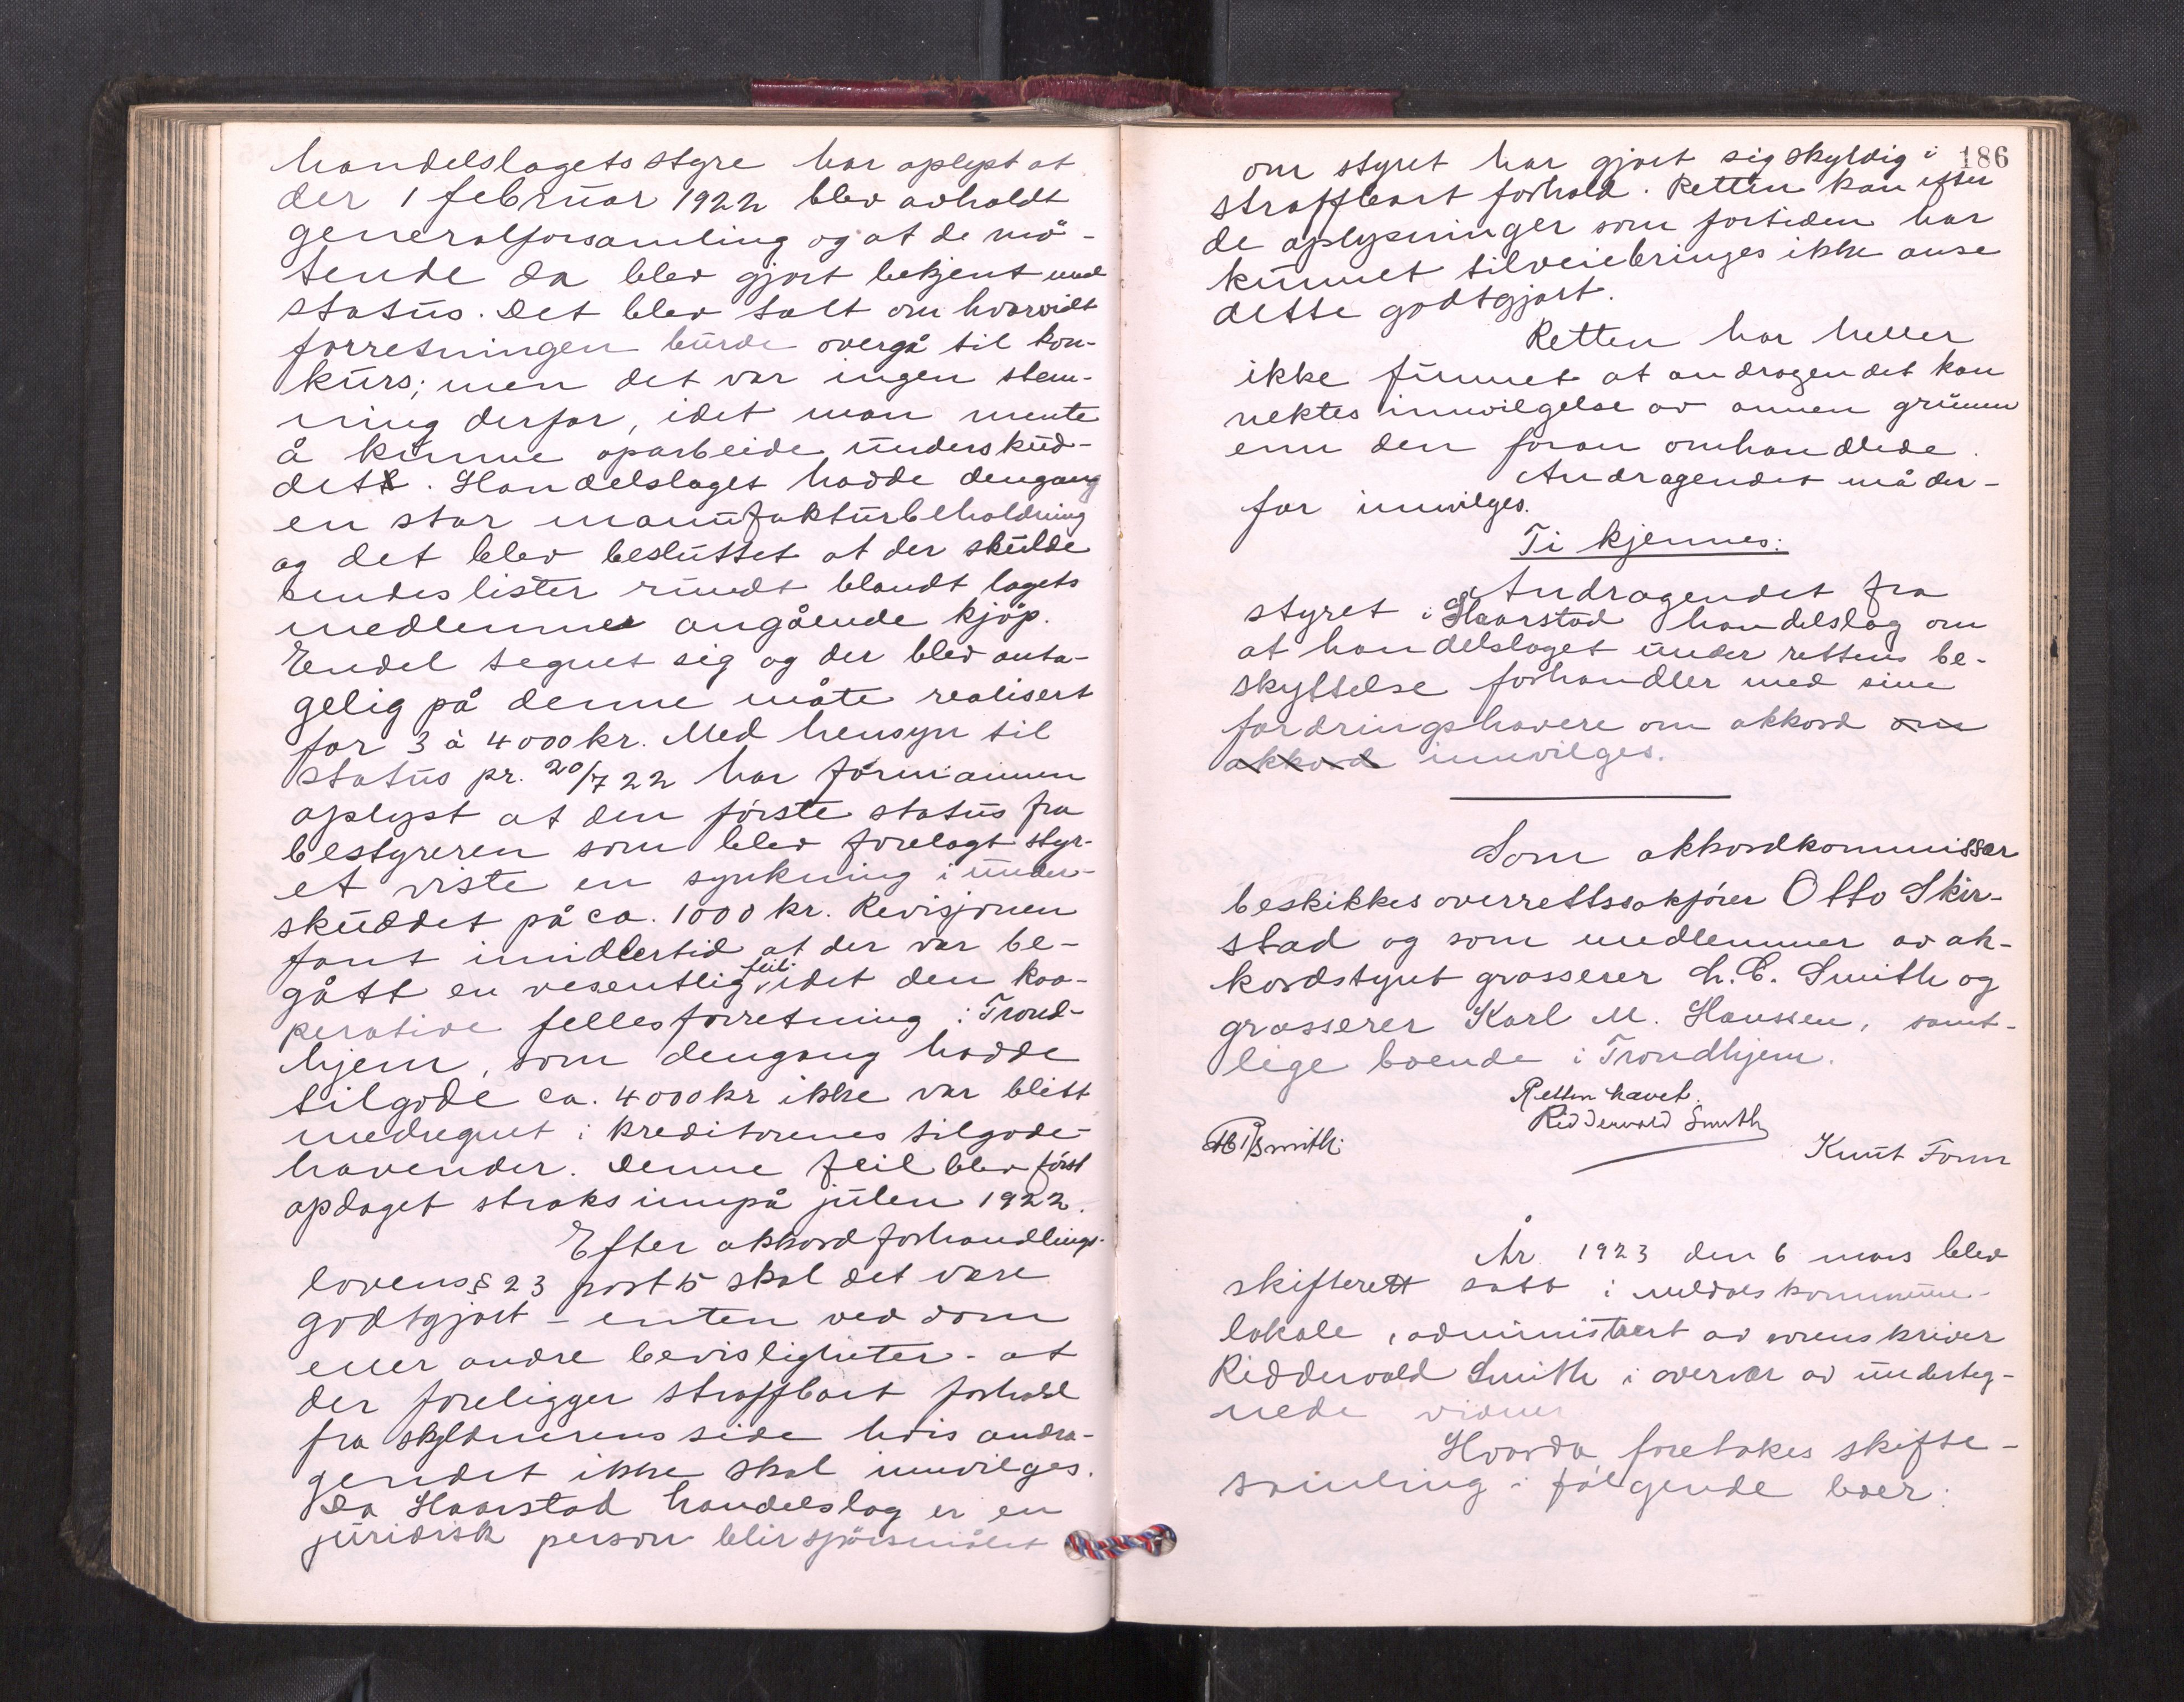 handelslagets styre har oplyst at
der 1 februar 1922 blev avholdt
generalforsamling og at de mö-
tende da blev gjort bekjent med
status. Det blev talt om hvorvidt
forretningen burde overgå til kon-
kurs; men det var ingen stem-
ning derfor, idet man mente
å kunne oparbeide undersküd-
det. Handelslaget hadde dengang
en stor manufakturbeholdning
og det blev besluttet at der skulde
sendes lister rundt blandt lagets
medlemmer angående kjöp.
Endel tegnet sig og der blev anta-
gelig på denne måte realisert
for 3 à 4000 kr. Med hensyn til
status pr. 20/7 22 har formannen
oplyst at den förste status fra
bestyreren som blev forelagt styr-
et viste en synkning i under-
skuddet på ca. 1000 kr. Revisjonen
fant imidlertid at der var be-
gått en vesentlig feil idet den koo-
perative fellesforretning i Trond-
hjem, som dengang hadde
tilgode ca. 4000 kr ikke var blitt
medregnet i kreditorenes tilgode-
havender. Denne feil blev först
opdaget straks innpå julen 1922.
Efter akkordforhandlings-
lovens § 23 post 5 skal det være
godtgjort - enten ved dom
eller andre bevisligheter - at
der foreligger straffbart forhold
fra skyldnerens side hvis andra-
gendet ikke skal innvilges.
Da Haarstad handelslag er en
juridisk person blir spörsmålet
186
om styret har gjort sig skyldig i
straffbart forhold. Retten kan efter
de oplysninger som fortiden har
kunnet tilveiebringes ikke anse
dette godtgjort.
Retten har heller
ikke funnet at andragendet kan
nektes innvilgelse av annen grunn
enn den foran omhandlede.
Andragendet må der-
for innvilges.
Ti kjennes:
Andragendet fra
styret i Haarstad handelslag om
at handelslaget under rettens be-
skyttelse forhandler med sine
fordringshavere om akkord om
akkord innvilges.
Som akkordkommissær
beskikkes overrettssakförer Otto Skir-
stad og som medlemmer av ak-
kordstyret grosserer L. C. Smith og
grosserer Karl M. Hanssen, samt-
lige boende i Trondhjem.
Retten hævet.
Ridderwold Smith
Smith.
Knut Form
År 1923 den 6 mars blev
skifterett satt i meldals kommune-
lokale, administrert av sorenskriver
Ridderwold Smith i overvær av underteg-
nede vidner
Hvorda foretokes skifte-
samling i fölgende boer: